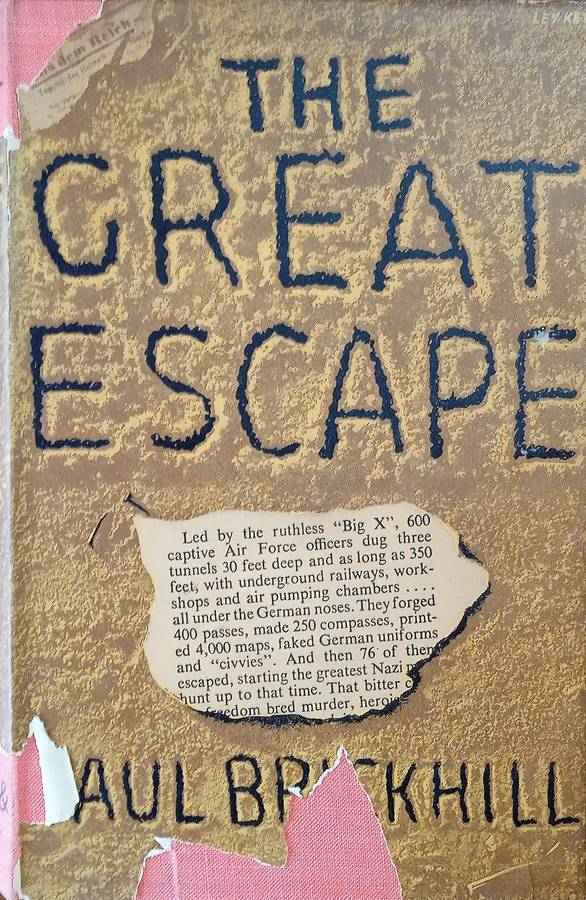 dem Reich
THE
GREAT
ESCAPE
Led by the ruthless “Big X”, 600
captive Air Force officers dug three
tunnels 30 feet deep and as long as 350
feet, with underground railways, work-
shops and air pumping chambers . . . .
all under the German noses. They forged
400 passes, made 250 compasses, print-
ed 4,000 maps, faked German uniforms
and “civvies”. And then 76 of them
escaped, starting the greatest Nazi
hunt up to that time. That bitter
bred murder,
AUL BRICKHILL